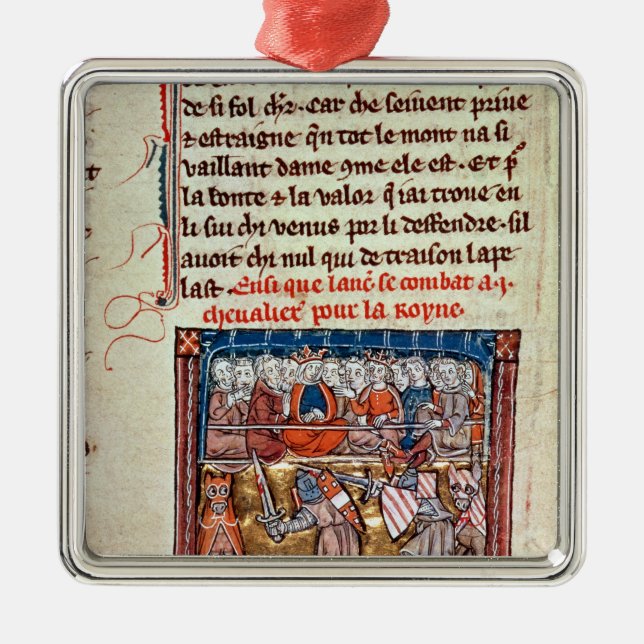 de si fol chr̄. Car che seiuent priue
⁊ estraigne qn̄ tot le mont na si
vaillant dame ꝯme ele est. Et p̄
la bonte ⁊ la valor q̄ iai troue en
li sui chi venus por li deffendre. sil
auoit chi nul qui de traison lape
last. Ensi que lanc̄. se combat a .j.
cheualier pour la Royne.